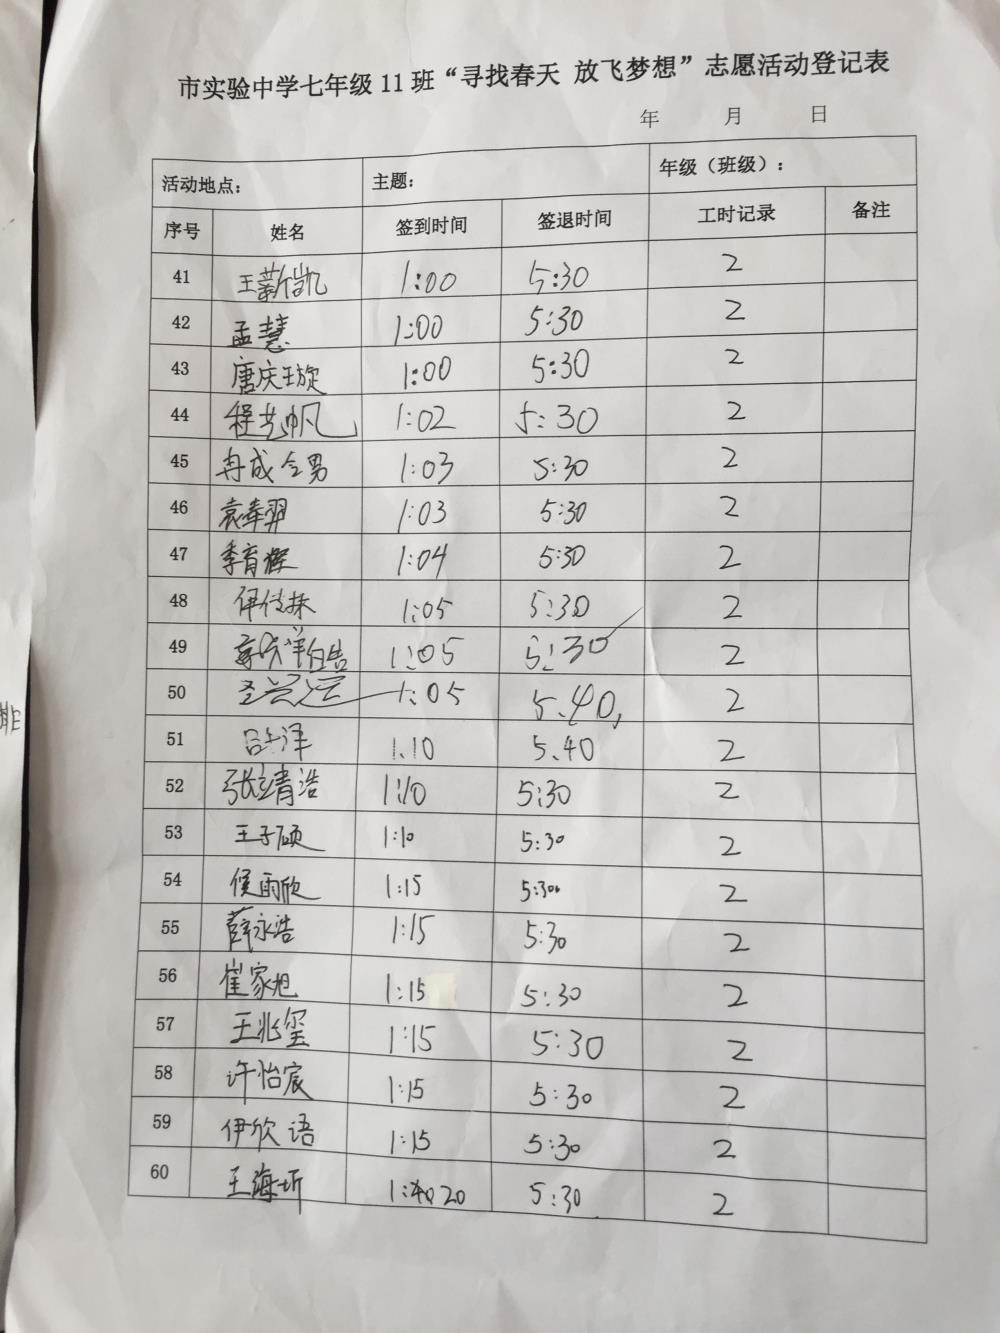 市实验中学七年级 11 班“寻找春天 放飞梦想”志愿活动登记表
年 月 日
活动地点： 主题： 年级（班级）：
序号 姓名 签到时间 签退时间 工时记录 备注
41 王薪凯 1:00 5:30 2
42 孟慧 1:00 5:30 2
43 唐庆璇 1:00 5:30 2
44 程艺帆 1:02 5:30 2
45 冉成令男 1:03 5:30 2
46 袁奉羿 1:03 5:30 2
47 季育樑 1:04 5:30 2
48 伊 1:05 5:30 2
49 1:05 5:30 2
50 1:05 5.40, 2
51 吕 泽 1.10 5.40 2
52 张靖浩 1:10 5:30 2
53 王子硕 1:10 5:30 2
54 候雨欣 1:15 5:30 2
55 薛永浩 1:15 5:30 2
56 崔家旭 1:15 5:30 2
57 王兆玺 1:15 5:30 2
58 许怡宸 1:15 5:30 2
59 伊欣语 1:15 5:30 2
60 王海圻 1:20 5:30 2
排